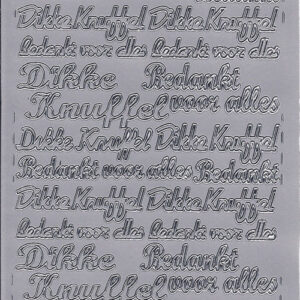 Dikke Knuffel Dikke Knuffel
Bedankt voor alles Bedankt voor alles
Dikke Bedankt
Knuffel voor alles
Dikke Knuffel Dikke Knuffel
Bedankt voor alles Bedankt
Dikke Knuffel Dikke Knuffel
Bedankt voor alles Bedankt voor alles
Dikke Bedankt
Knuffel voor alles